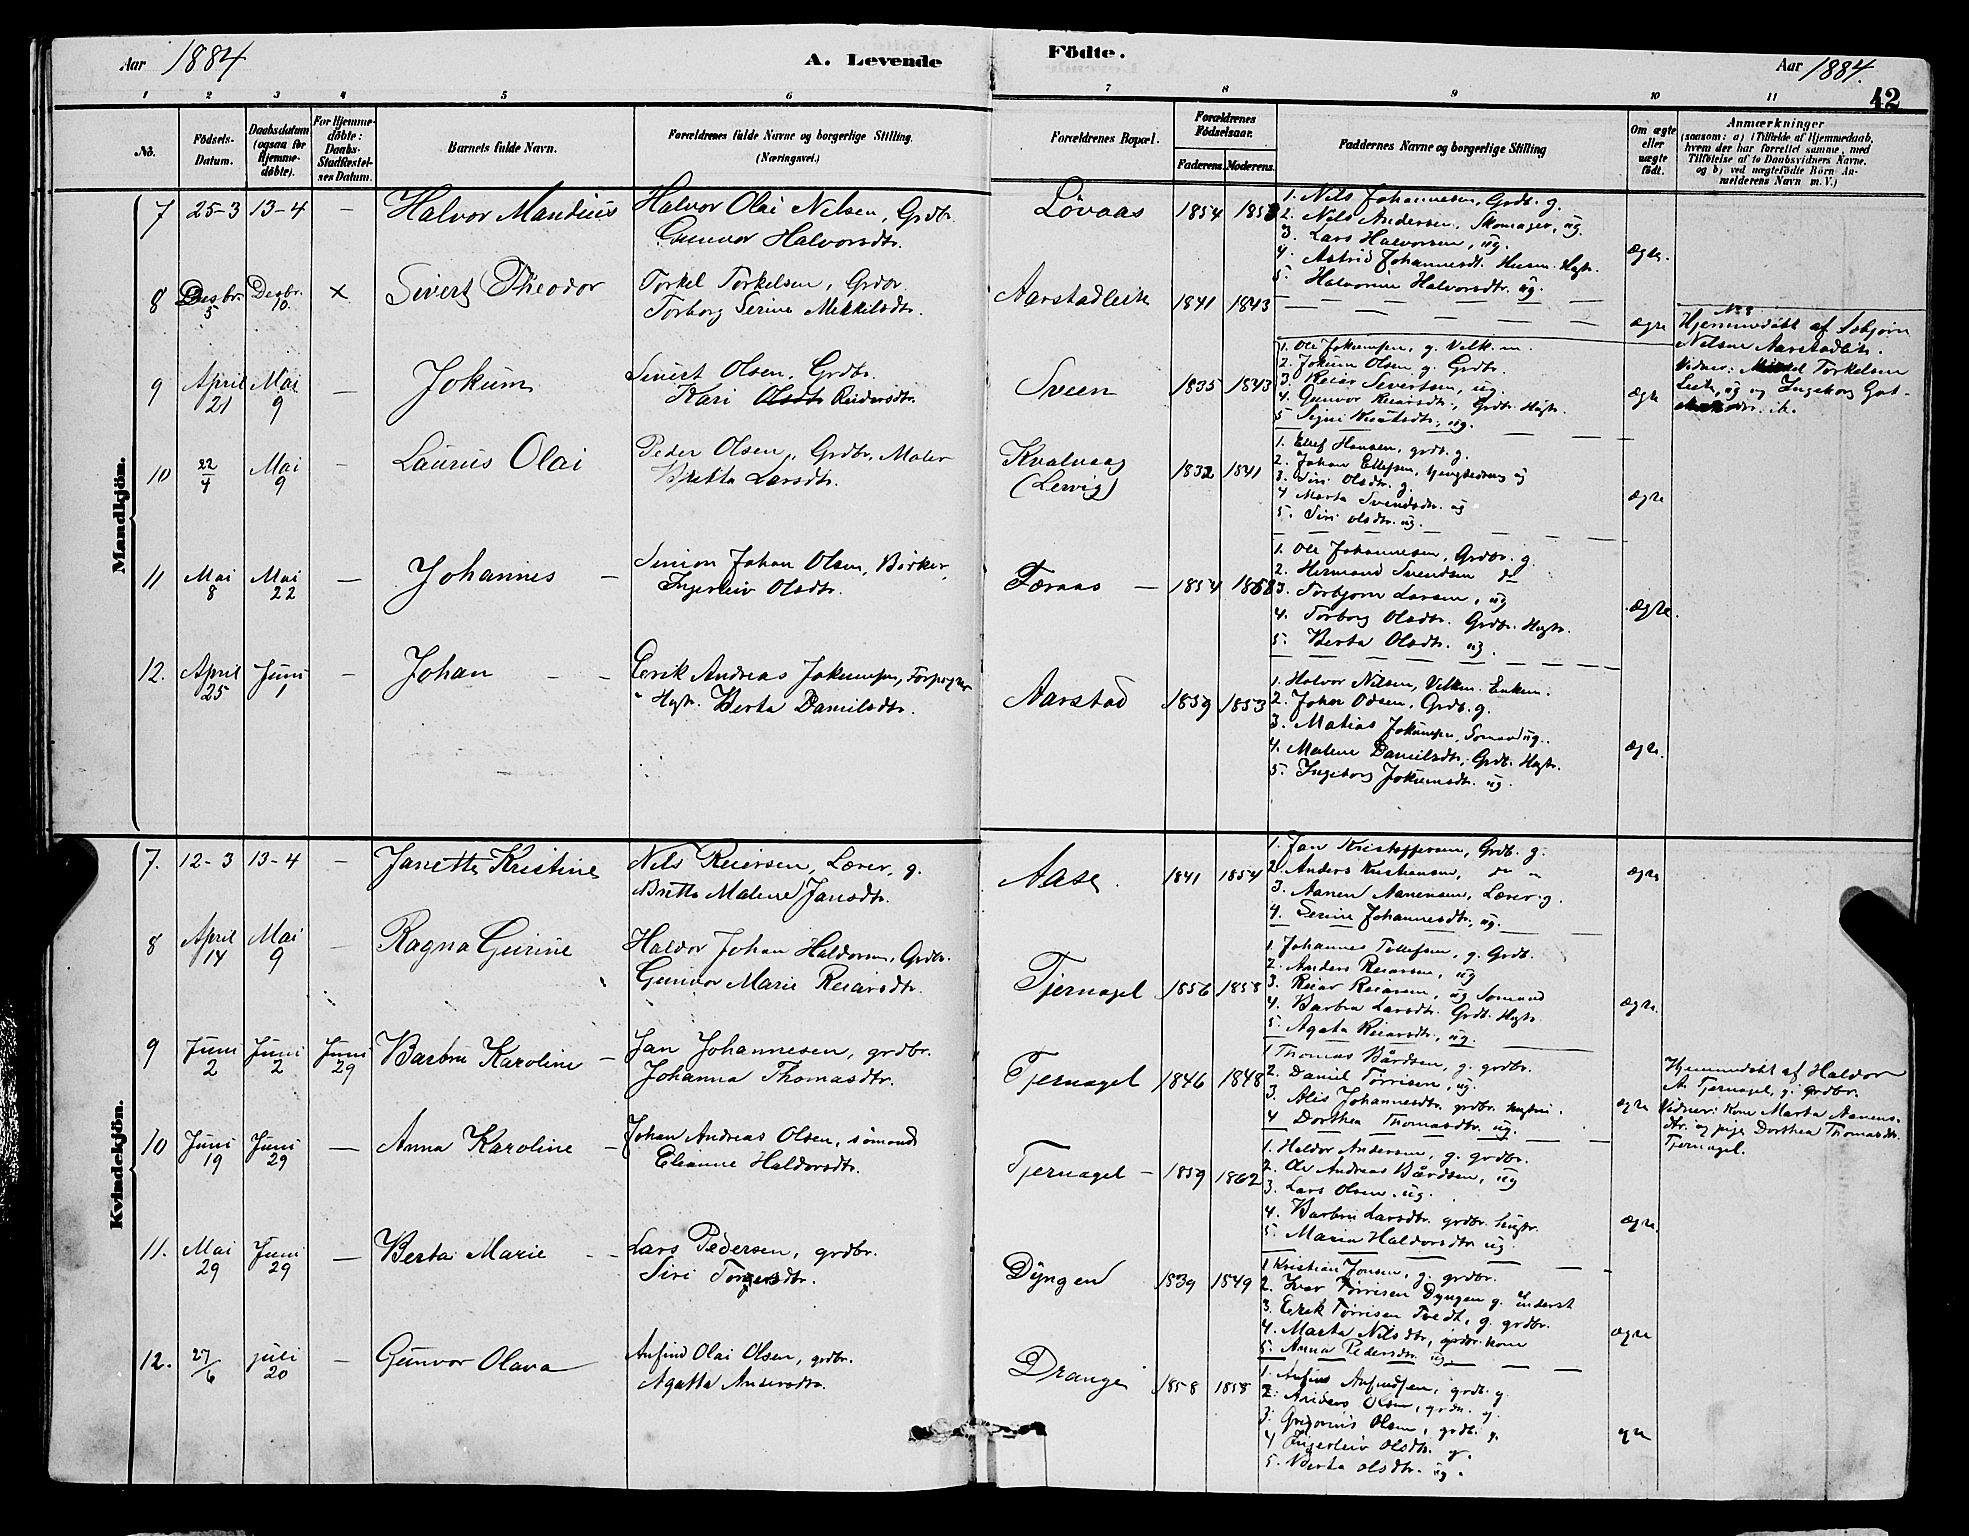 Aar 1884 A. Levende Födte. Aar 1884.
42
1 2 3 4 5 6 7 8 9 10 11
No. Födsels-Datum. Daabsdatum (ogsaa for Hjemme-döbte). For Hjemme-döbte: Daabs-Stadfæstel-ses Datum. Barnets fulde Navn. Forældrenes fulde Navne og borgerlige Stilling. (Næringsvei.) Forældrenes Bopæl. Forældrenes Födselsaar. Faderens. Moderens. Faddernes Navne og borgerlige Stilling Om ægte eller uægte födt.
Anmærkninger
(saasom: a) i Tilfælde af Hjemmedaab,
hvem der har forrettet samme, med
Tilföielse af to Daabsvidners Navne.
og b) ved uægtefödte Börn An-
melderens Navn m. V.)
Mandkjön.
7 25-3 13-4 – Halvor Mandius Halvor Olai Nelsen, Grdbr.
Gunvor Halvorsdtr.
Lövaas 1854 1858
1. Nils Johannesen, Grdb. g.
2. Nils Andersen, Skomager, ug.
3. Lars Halvorsen, ug.
4. Astrid Johannesdt. Husm. Hgtr.
5. Halvorine Halvorsdtr. ug.
ægte.
8 Desbr. 5 Desbr. 10 x Sivert Theodor Torkel Torkelsen, Grdbr.
Torborg Serine Mikkelsdtr.
Aarstadlien 1841 1843
ægte
No 8
Hjemmedöbt af Asbjörn
Nelsen Aarstadlien.
Vidner: Torkelsen
Lien, ug og Ingeborg
9 April 21 Mai 9 – Jokum Sivert Olsen, Grdbr.
Kari Reidersdtr.
Sveen 1835 1843
1. Ole Jokumsen, g. Velk. m.
2. Jokum Olsen g. Grdbr.
3. Reiar Severtsen, ug.
4. Gunvor Reiarsdtr., Grdbr. Hgtr.
5. Signi Knutsdtr., ug.
ægte
10 22/4 Mai 9 – Laurus Olai Peder Olsen, Grdbr. Maler
Britta Larsdtr.
Kvalvaag
(Lervig)
1832 1841
1. Ellef Hansen, grdb. g.
2. Johan Ellefsen, ug
3. Siri Olsdtr. g.
4 Marta Svendsdtr. ug
5. Siri Olsdtr. ug.
ægte
11 Mai 8 Mai 22 – Johannes – Simon Johan Olsen, Bödker,
Ingerleiv Olsdtr.
Færaas – 1854 1858
1. Ole Johannesen, Grdbr. g.
2. Hermand Svendsen do
3. Torbjorn Larsen, ug
4. Torborg Olsdtr. Grdbr. Hgtr.
5. Berta Olsdtr. ug.
ægte.
12. April 25 Juni 1 – Johan – – Erik Andreas Jokumsen, Forpagter
" Hgtr. Berta Danielsdtr.
Aarstad 1859 1853
1. Halvor Nilsen, Velkm. Enkem.
2. Johan Odsen, Grdb. g.
3. Matias Jokumsen, Sömand ug.
4. Malene Danielsdtr, Grdb. Hgtr.
5. Ingeborg Jokumsdtr. ug
ægte.
Kvindekjön.
7. 12-3 13-4 – Janette Kristine Nils Reiersen, Lærer, g.
Britta Malene Jansdtr.
Aase. 1841 1854
1. Jan Kristoffersen, Grdb. g.
2. Anders Kristiansen, do "
3. Aanen Aanensen, Lærer g.
4. Serine Johannesdtr. ug.
ægte
8 April 14 Mai 9 – Ragna Gurine Haldor Johan Haldorsen, Grdbr.
Gunvor Marie Reiarsdtr.
Tjernagel 1856 1858
1. Johannes Tollefsen, g. Grdbr.
2. Anders Reiarsen, ug
3. Reiar Reiarsen, ug Sömand
4. Barbra Larsdtr. Grdb. Hgtr.
5. Agata Reiarsdtr, ug.
ægte.
9 Juni 2 Juni 2 Juni 29 Barbru Karoline – Jan Johannesen, grdbr.
Johanna Thomasdtr.
Tjernagel 1846 1848
1 Thomas Bårdsen, g. grdbr.
2. Daniel Törrisen, ug.
3. Alis Johannesdtr. grdbr. hustru.
4 Dorthea Thomasdtr. ug.
ægte
Hjemmedöbt af Haldor
A. Tjernagel, g. grdbr.
Vidner: Kone Marta Aanens-
dtr. og pige Dorthea Thomasdtr.
Tjernagel.
10 Juni 19 Juni 29 – Anna Karoline – Johan Andreas Olsen, sömand
Elianne Haldorsdtr.
Tjernagel – 1859 1862
1. Haldor Andersen, g. grdbr.
2. Ole Andreas Bårdsen, ug
3. Lars Olsen, ug.
4. Barbru Larsdtr. grdbr. hugtr.
5. Maria Haldorsdtr ug.
ægte.
11. Mai 29 Juni 29 – Berta Marie – – Lars Pedersen, grdbr.
Siri Torgersdtr.
Dyngen 1839 1849
1 Kristian Jonsen, g. grdbr.
2. Iver Törrisen Dyngen g. inderst
3. Erik Törrisen Tvedt, g. grdbr.
4. Marta Nilsdtr, grdbr. kone
5. Anna Pedersdtr ug.
ægte
12. 27/6 juli 20 – Gunvor Olava Anfind Olai Olsen, grdbr.
Agatta Andersdtr.
Drange 1858 1858
1. Anfind Anfindsen, grdb. g.
2. Anders Olsen, grdb. g.
3. Gregorius Olsen, grdb. g.
4 Ingerleiv Olsdtr. g.
5. Berta Olsdtr. ug.
ægte